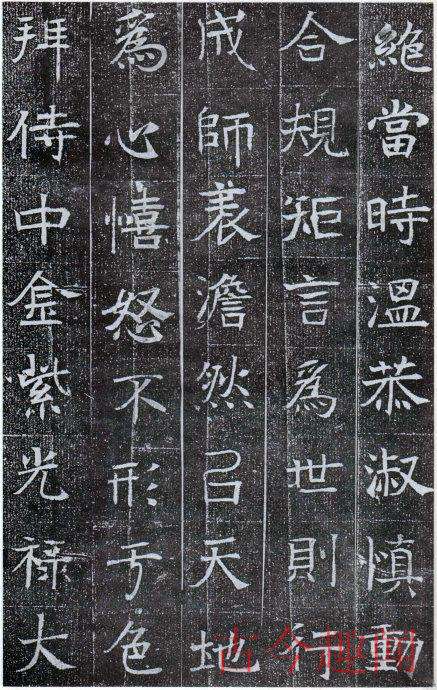 絶當時溫恭淑慎動
合規矩言爲世則行
成師表澹然㠯天地
爲心憘怒不形于色
拜侍中金紫光祿大
古今趣闻